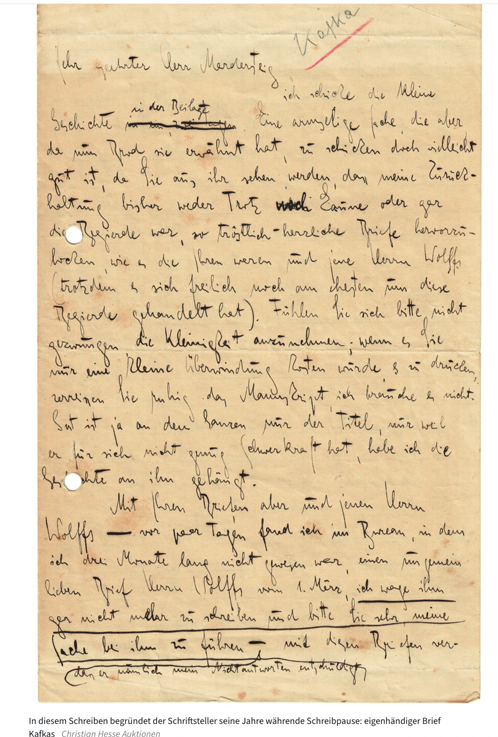 Kafka
Sehr geehrter Herr Mardersteig
ich schicke die kleine
in der Beilage
Geschichte Eine armselige Sache, die aber
da nun Brod sie erwähnt hat, zu schicken doch vielleicht
gut ist, da Sie aus ihr sehen werden, dass meine Zurück-
haltung bisher weder Trotz noch Laune oder gar
die Begierde war, so tröstlich-herzliche Briefe hervorzu-
locken, wie es die Ihren waren und jene Herrn Wolffs
(trotzdem es sich freilich noch am ehesten um diese
Begierde gehandelt hat). Fühlen Sie sich bitte, nicht
gezwungen die Kleinigkeit anzunehmen; wenn es Sie
nur eine kleine Überwindung kosten würde es zu drucken,
zerreissen Sie ruhig das Manuskript, ich brauche es nicht.
Gut ist ja an dem Ganzen nur der Titel, nur weil
er für sich nicht genug Schwerkraft hat, habe ich die
Geschichte an ihn gehängt.
Mit Ihren Briefen aber und jenen Herrn
Wolffs — vor paar Tagen fand ich im Bureau, in dem
ich drei Monate lang nicht gewesen war, einen ungemein
lieben Brief Herrn Wolffs vom 1. März, ich wage ihm
gar nicht mehr zu schreiben und bitte Sie sehr meine
Sache bei ihm zu führen — mit diesen Briefen ver-
(dass er nämlich mein Nichtantworten entschuldigt)
In diesem Schreiben begründet der Schriftsteller seine Jahre währende Schreibpause: eigenhändiger Brief
Kafkas Christian Hesse Auktionen